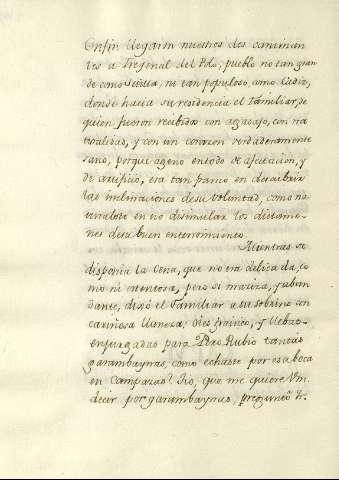 Enfin llegaron nuestros dos caminan
tes a Fregenal del Palo, pueblo no tan gran
de como Sevilla, ni tan populoso como Cadiz,
donde hacia su residencia el Familiar, de
quien fueron recibidos con agasajo, con na
turalidad, y con un corazon verdaderamente
sano, porque ageno entodo de afectacion, y
de artificio, era tan parco en descubrir
las inclinaciones desu voluntad, como na
turalote en no disimular los dictame
nes desu buen entendimiento.
Mientras se
disponia la Cena, que no era delicada, co
mo ni ostentosa, pero si maciza, y abun
dante, dixo el Familiar a su sobrino con
cariñosa llaneza,
para tantas
garambaynas, como echaste por esa boca
en Campazas? Tio, que me quiere Vm.
decir por garambaynas, preguntó